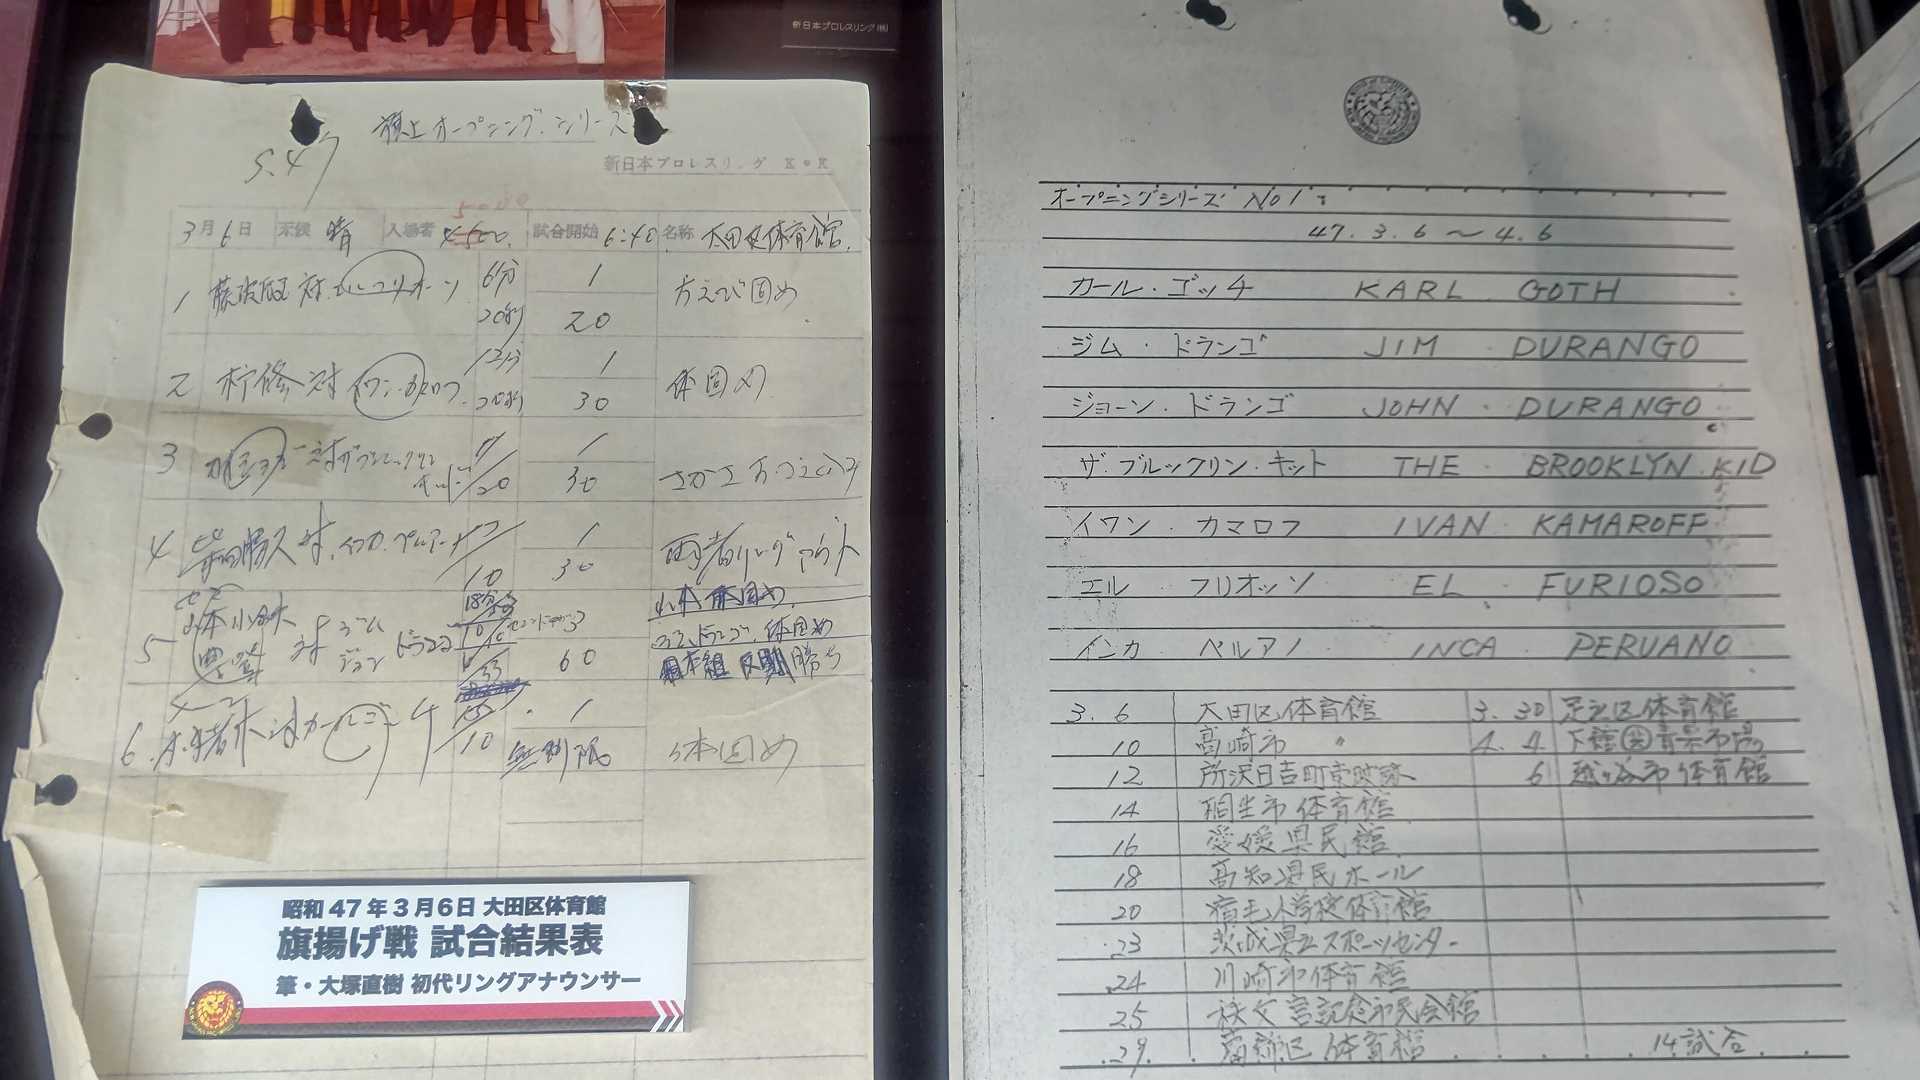 新日本プロレスリング(株)
旗上オープニング・シリーズ
S.47
新日本プロレスリング K・K
5000
3月6日 天候 晴 入場者 4500. 試合開始 6:40 名称 大田区体育館.
1 藤波辰巳 対 エル・フリオーソ 6分 20秒 1 20 片えび固め
2 柴修 対 イワン・カマロフ 12分 1 30 体固め
3 対 ブルックリン キット 20 1 30 さかさ片
4 柴田勝久 対 インカ・ペルアーノ 10 1 30 両者リングアウト
5 山本小鉄 豊登 対 ジム ジョン ドランゴ 3 60 山本 体固め
体固め
日本組 反則勝ち
6. 対 カール・ゴッチ 15 10 1 無制限 体固め
昭和47年3月6日 大田区体育館
旗揚げ戦 試合結果表
筆・大塚直樹 初代リングアナウンサー
オープニングシリーズ No1.
47. 3. 6 〜 4. 6
カール・ゴッチ KARL GOTH
ジム・ドランゴ JIM DURANGO
ジョーン・ドランゴ JOHN DURANGO
ザ・ブルックリン・キット THE BROOKLYN KID
イワン・カマロフ IVAN KAMAROFF
エル フリオッソ EL FURIOSO
インカ ペルアノ INCA PERUANO
3. 6 大田区体育館 3. 30 足立区体育館
10 高崎市 〃 4. 4 下館㊥青果市場
12 所沢日吉町 6 越ヶ谷市体育館
14 桐生市体育館
16 愛媛県民館
18 高知県民ホール
20 宿毛小学校体育館
23 茨城県立スポーツセンター
24 川崎市体育館
25 秩父宮記念市民会館
29 葛飾区体育館 14試合